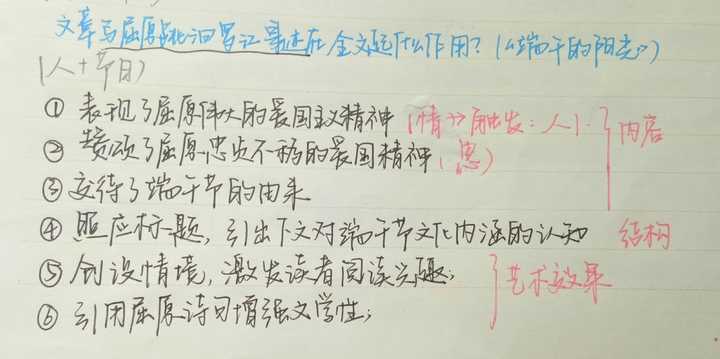 文章写屈原跳汩罗江事迹在全文起什么作用？(《端午的阳光》)
(人+节日)
① 表现了屈原伟大的爱国主义精神 (情→触发：人)
内容
② 赞颂了屈原忠贞不移的爱国精神(思)
③ 交待了端午节的由来
④ 照应标题，引出下文对端午节文化内涵的认知 结构
⑤ 创设情境，激发读者阅读兴趣；
艺术效果
⑥ 引用屈原诗句增强文学性；